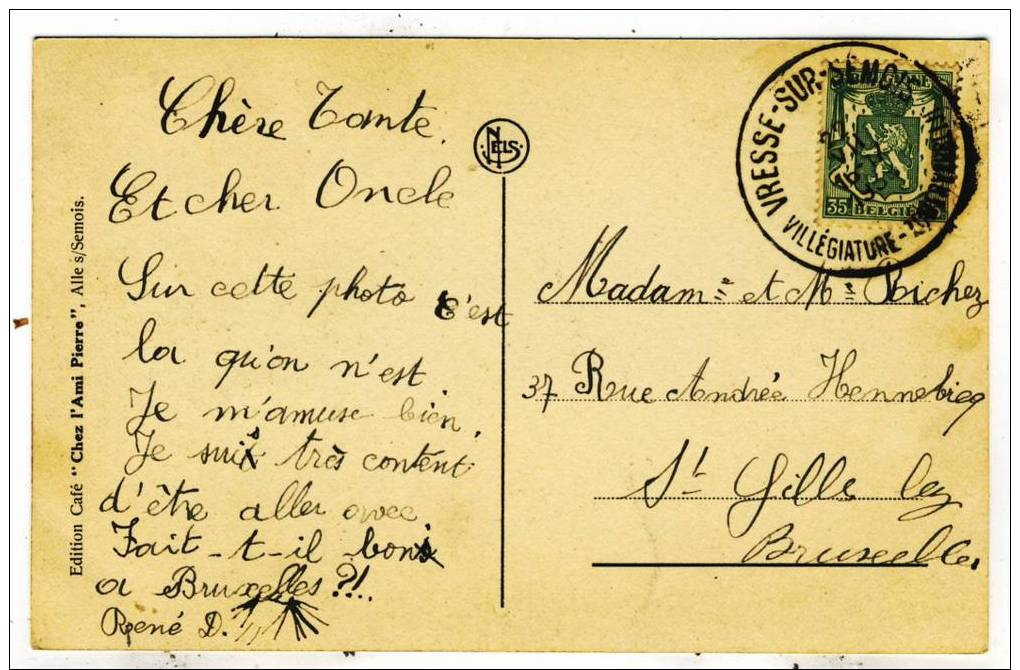 Chère Tante
Et cher Oncle
Sur cette photo c'est
la qu'on n'est
Je m'amuse bien,
Je suis très content
d'être aller avec
Fait-t-il bon
a Bruxelles ?!..
René D.
Edition Café "Chez l'Ami Pierre", Alle s/Semois.
NELS
VRESSE-SUR-SEMOIS
VILLÉGIATURE-
35 BELGIË
Madame et Mr
37 Rue André Hennebicq
St Gille lez
Bruxelles